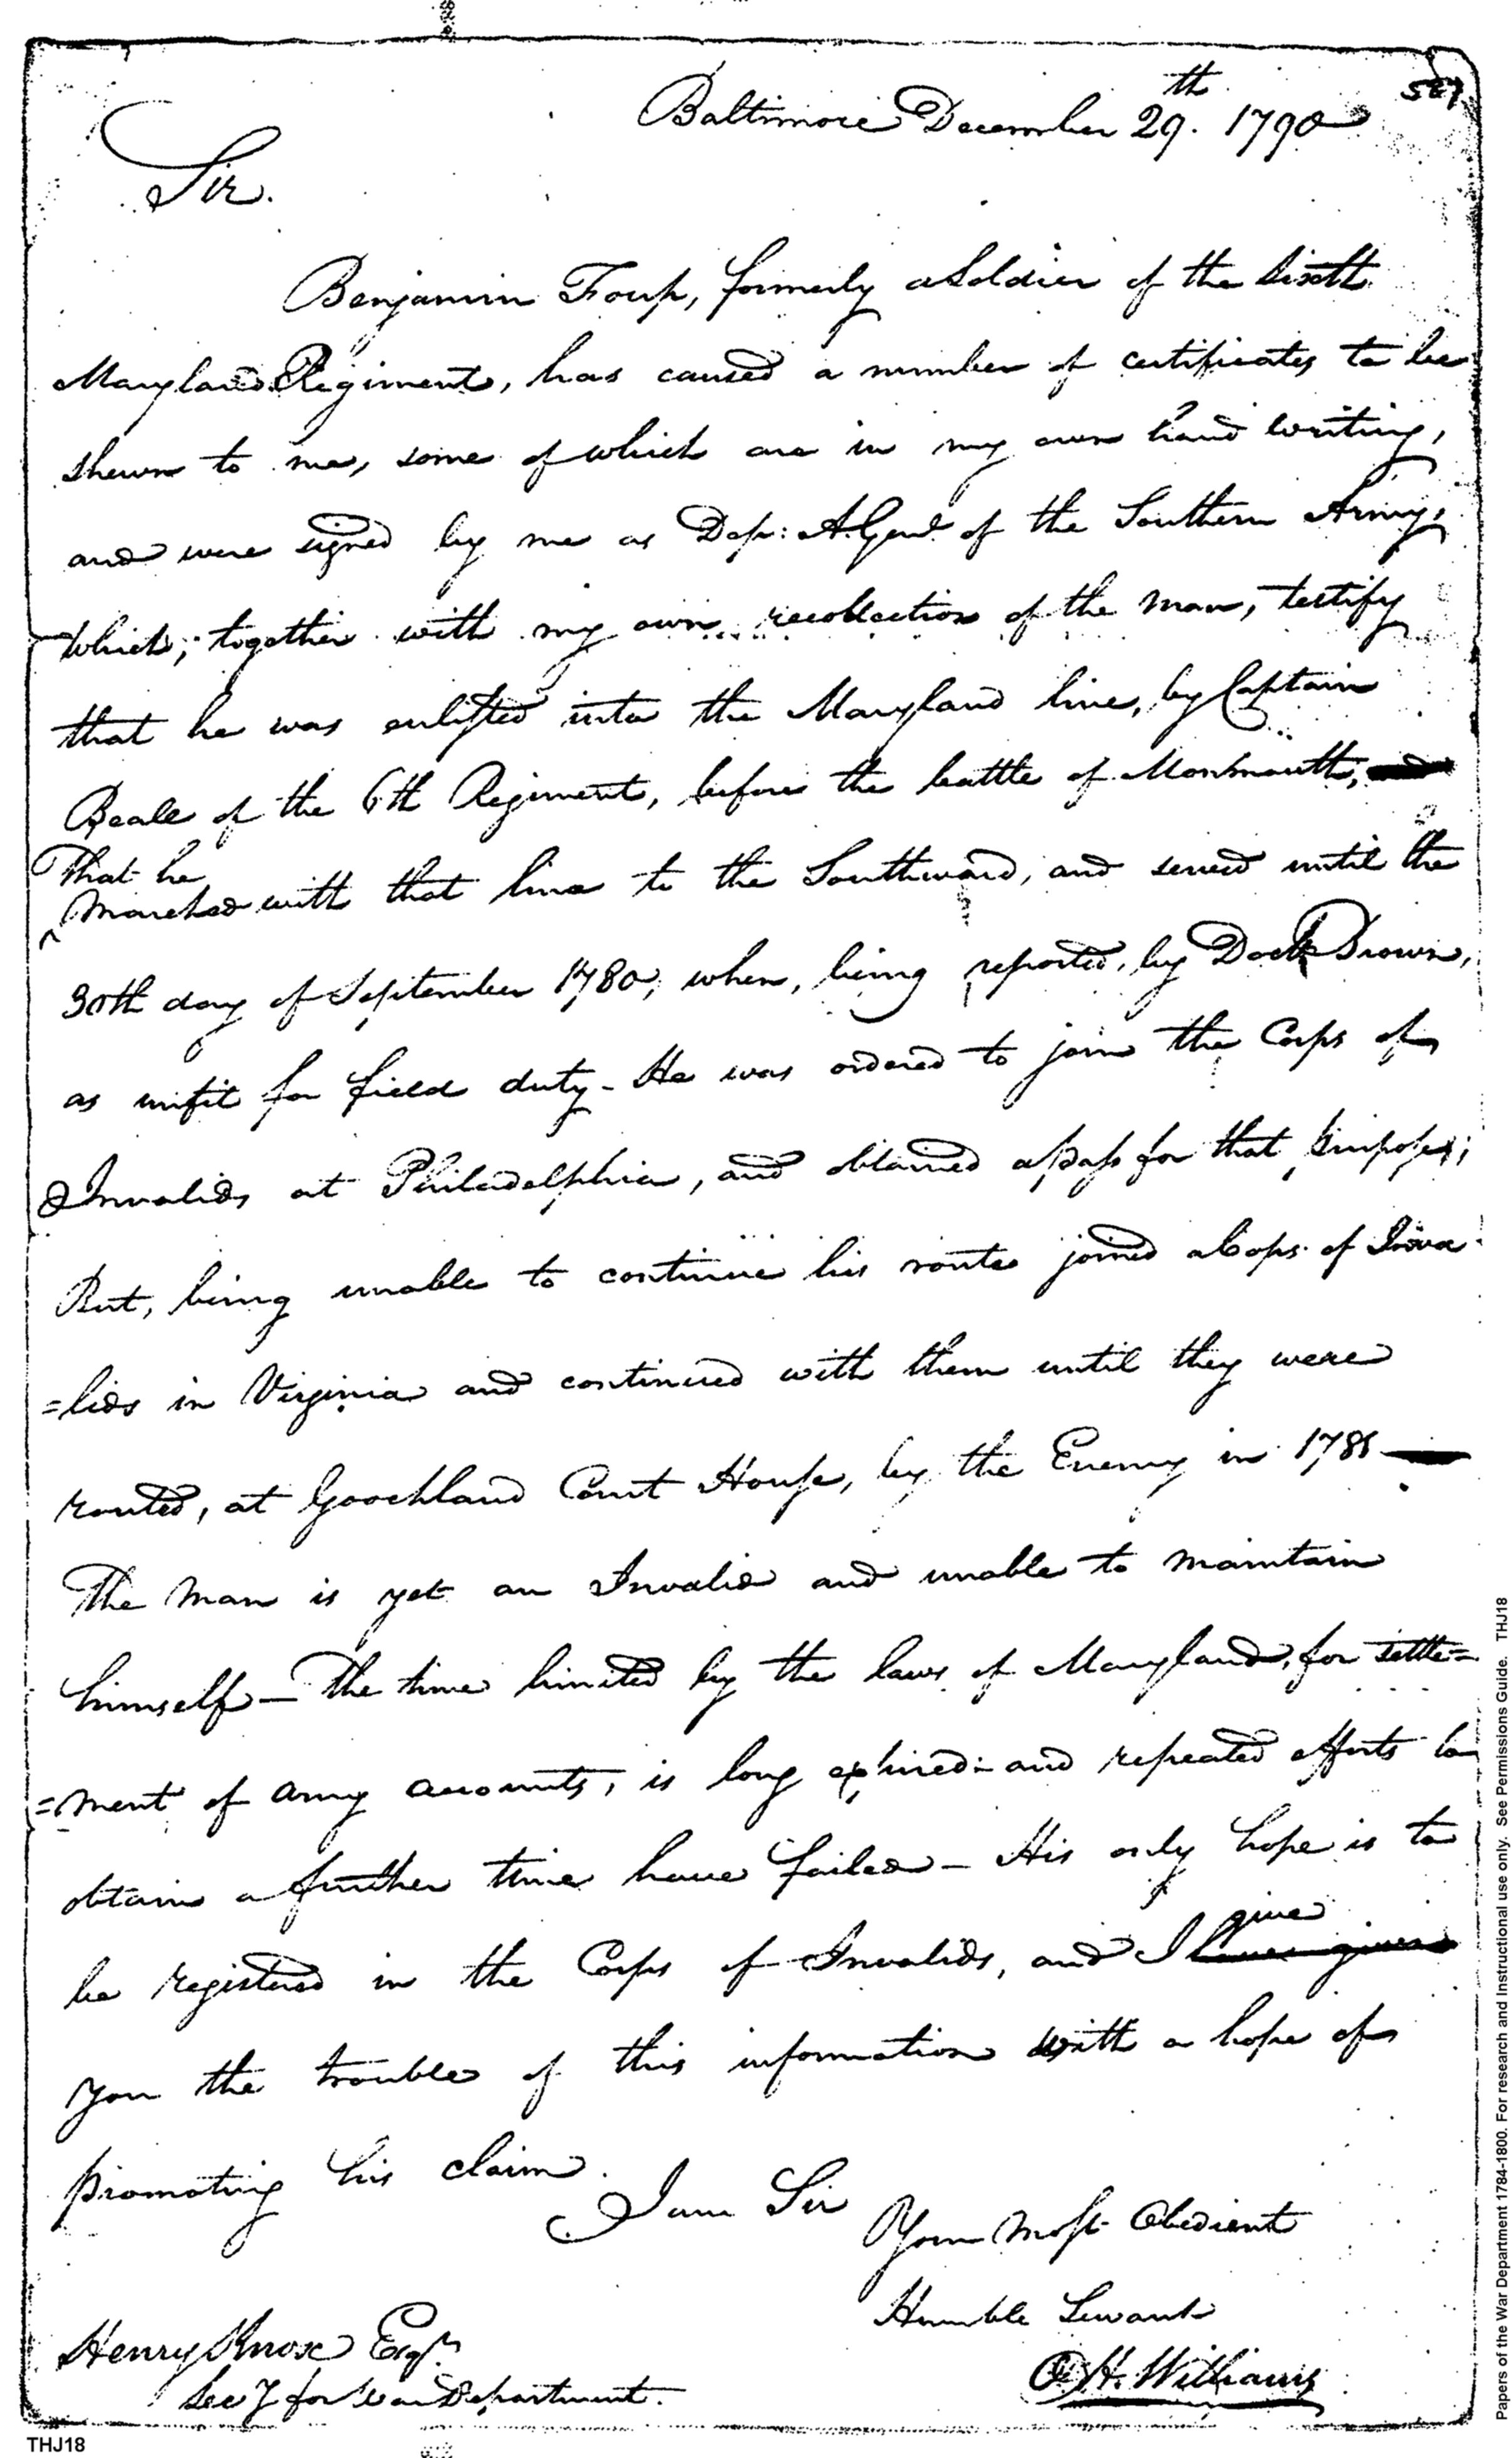 Baltimore December 29th. 1790
Sir.
Benjamin Foup, formerly a Soldier of the Sixth
Maryland Regiment, has caused a number of certificates to be
shewn to me, some of which are in my own hand writing,
and were signed by me as Dep: A. Genl. of the Southern Army,
which, together with my own recollection of the man, testify
that he was enlisted into the Maryland line, by Captain
Beall of the 6th Regiment, before the battle of Monmouth,
That he
marched with that line to the Southward, and served until the
30th day of September 1780, when, being reported, by Doctr Brown,
as unfit for field duty - He was ordered to join the Corps of
Invalids at Philadelphia, and obtained a pass for that purpose;
But, being unable to continue his route joined a Corps of Inva
=lids in Virginia and continued with them until they were
routed, at Goochland Court House, by the Enemy in 1781 —
The man is yet an Invalid and unable to maintain
himself — The time limited by the laws of Maryland, for settle=
=ment of army accounts, is long expired - and repeated efforts to
obtain a further time have failed - His only hope is to
give
be registered in the Corps of Invalids, and I have given
you the trouble of this information with a hope of
promoting his claim.
I am Sir
Your most Obedient
Humble Servant
O. H. Williams
Henry Knox Esqr.
Secy for War Department.
THJ18
Papers of the War Department 1784-1800. For research and Instructional use only. See Permissions Guide. THJ18